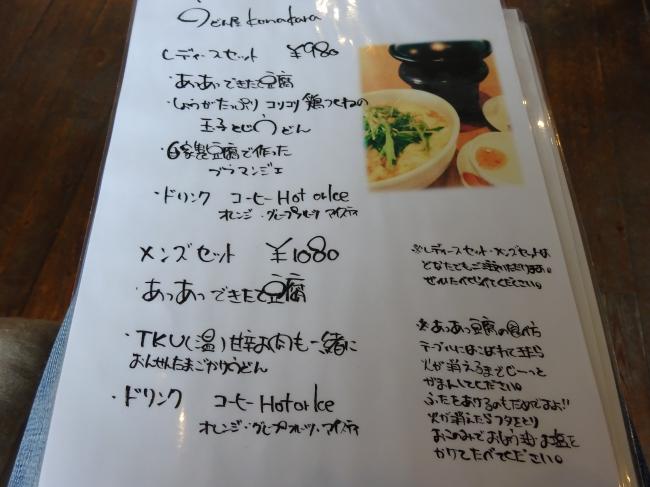 うどん屋 konakara
レディースセット ¥980
・あつあつできたて豆腐
・しょうがたっぷり コリコリ 鶏つくねの
玉子とじうどん
・自家製豆腐で作った
ブラマンジェ
・ドリンク コーヒー Hot or Ice
オレンジ・グレープフルーツ アイスティ
メンズセット ¥1080
・あつあつできたて豆腐
・TKU(温)甘辛お肉も一緒に
おんせんたまごかけうどん
・ドリンク コーヒー Hot or Ice
オレンジ・グレープフルーツ・アイスティ
※レディースセット・メンズセットは
どなたでもご注文いただけます。
ぜひたべてみてください。
※あつあつ豆腐の食べ方
テーブルにはこばれて来たら
火が消えるまでじーっと
がまんしてください。
ふたをあけるのもだめですよ!!
火が消えたらフタをとり
おこのみでおしょう油 お塩を
かけてたべてください。